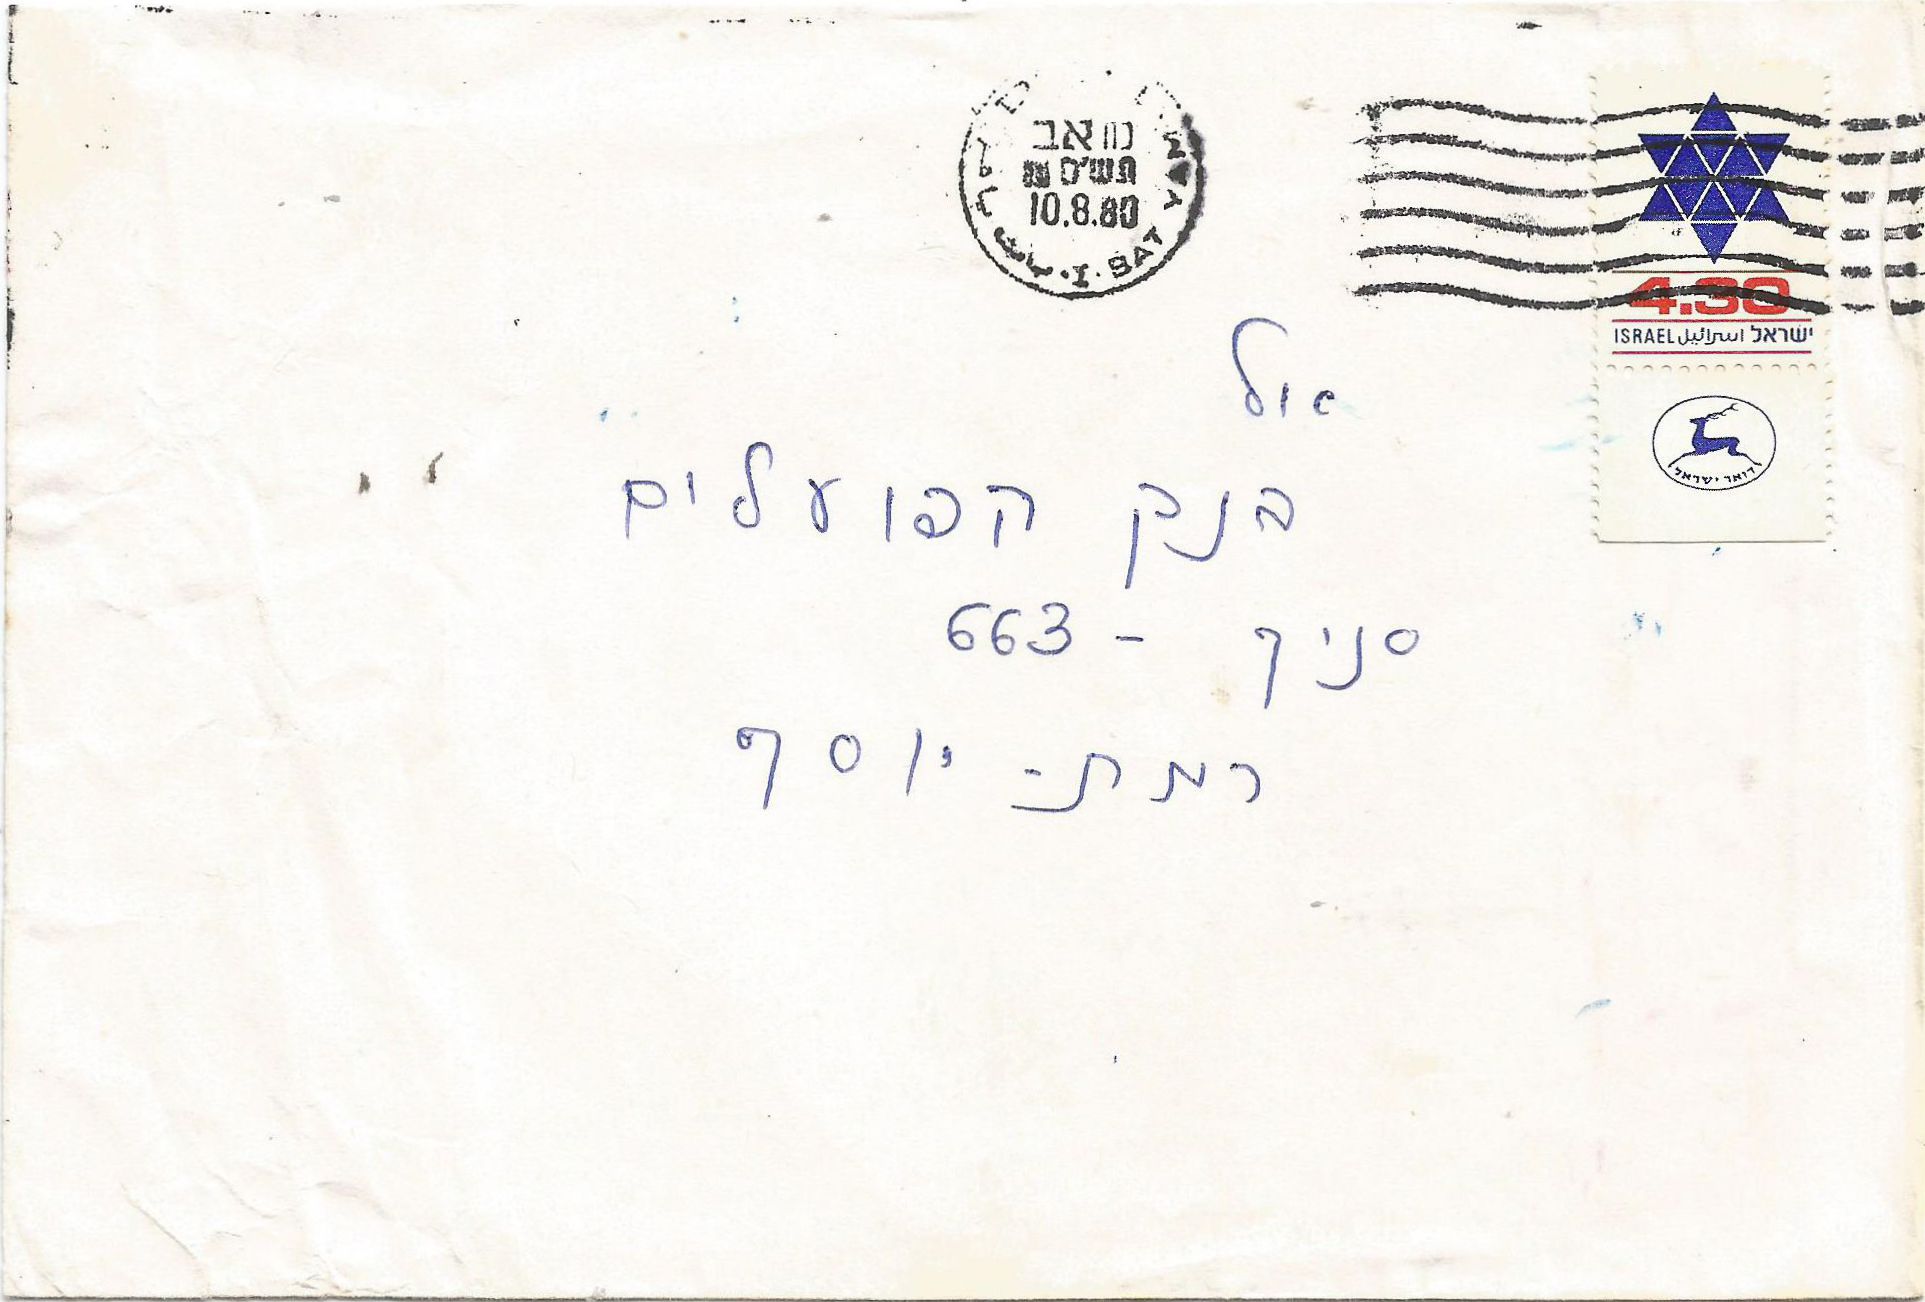 כח אב
תש"ם
10.8.80
بات يام · I · BAT YAM
4.30
ישראל اسرائيل ISRAEL
דואר ישראל
אל
בנק הפועלים
סניף - 663
רמת - יוסף